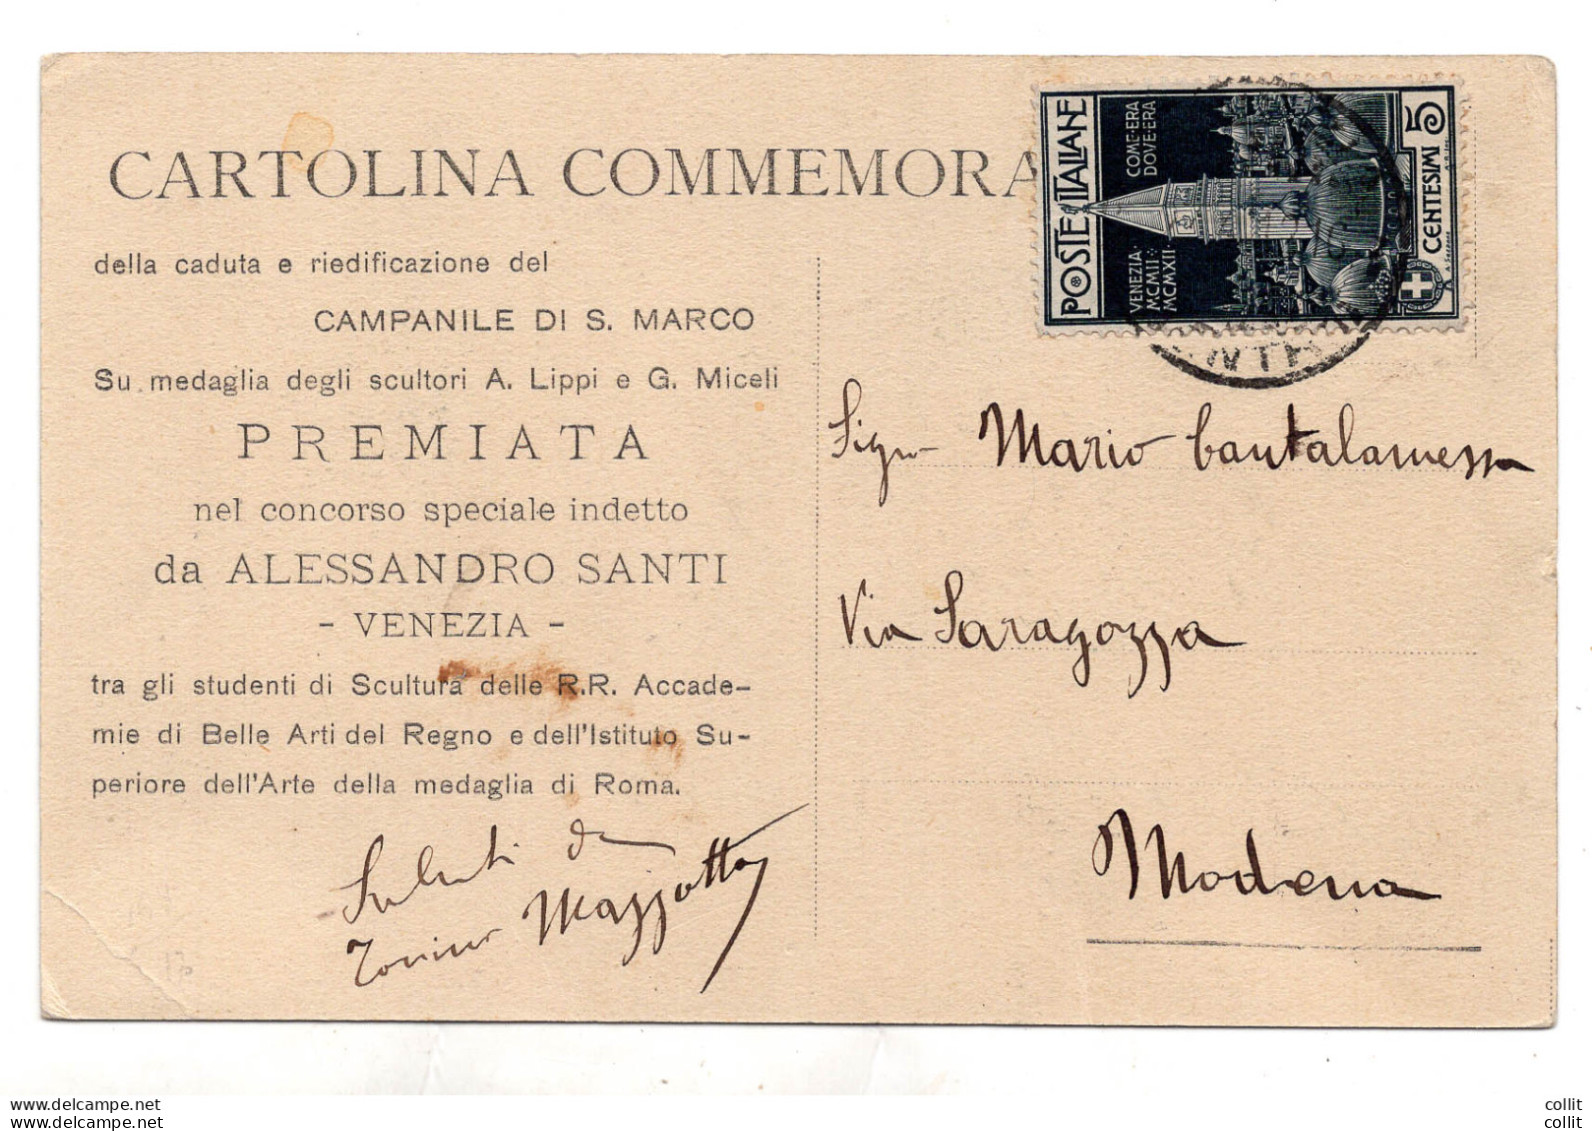 CARTOLINA COMMEMORA
della caduta e riedificazione del
CAMPANILE DI S. MARCO
Su medaglia degli scultori A. Lippi e G. Miceli
PREMIATA
nel concorso speciale indetto
da ALESSANDRO SANTI
- VENEZIA -
tra gli studenti di Scultura delle R.R. Accade-
mie di Belle Arti del Regno e dell'Istituto Su-
periore dell'Arte della medaglia di Roma.
Saluti da
Tonino Mazzotto
POSTE ITALIANE
VENEZIA·
MCMII·
MCMXII
COM'ERA
DOV'ERA
CENTESIMI 5
Sigr Mario Cantalamessa
Via Saragozza
Modena
www.delcampe.net
www.delcampe.net
collit
collit